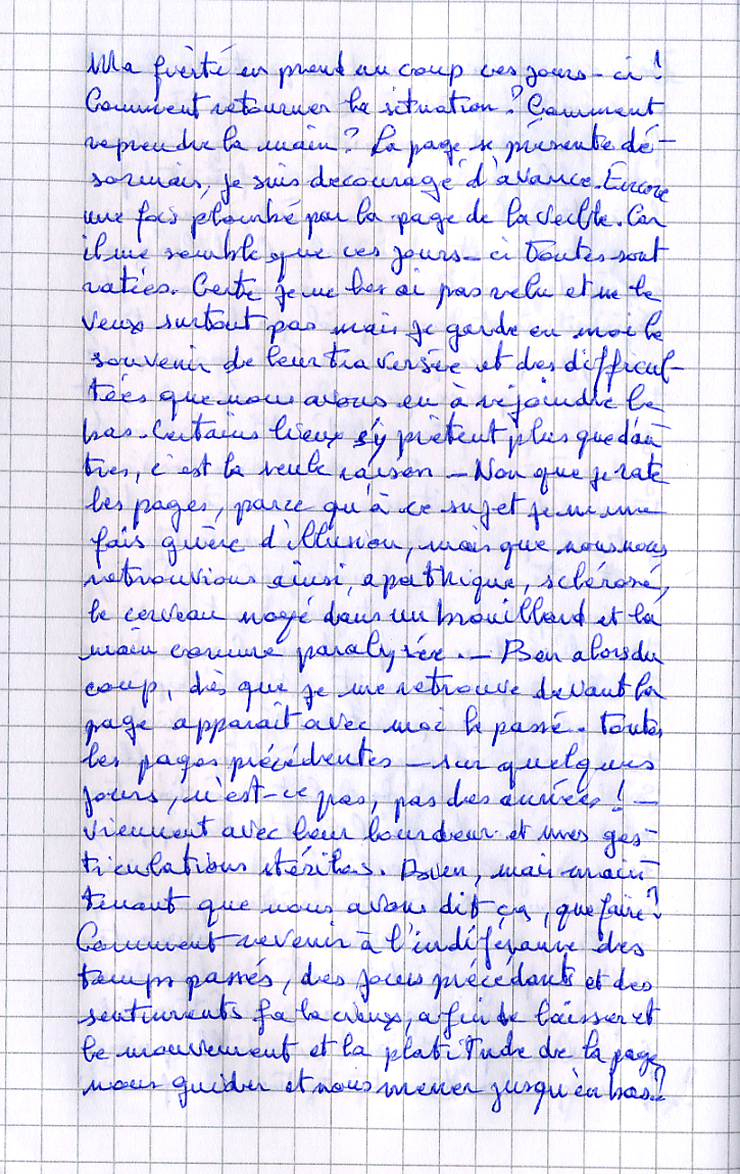 Ma fierté en prend un coup ces jours-ci !
Comment retourner la situation ? Comment
reprendre la main ? La page se présente dé-
sormais, je suis decouragé d'avance. Encore
une fois plombé par la page de la veille. Car
il me semble que ces jours-ci toutes sont
ratées. Certe je ne les ai pas relu et ne le
veux surtout pas mais je garde en moi le
souvenir de leur traversée et des difficul-
tées que nous avons eu à rejoindre le
bas. Certains lieux s'y prètent plus que d'au
tres, c'est la seule raison – Non que je rate
les pages, parce qu'à ce sujet je ne me
fais guère d'illusion, mais que nous nous
retrouvions ainsi, apathique, sclérosé,
le cerveau noyé dans un brouillard et la
main comme paralysée. – Bon alors du
coup, dès que je me retrouve devant la
page apparait avec moi le passé. Toutes
les pages précédentes – sur quelques
jours, n'est-ce pas, pas des années ! –
viennent avec leur lourdeur et mes ges-
ticulations stériles. Bien, mais main-
tenant que nous avons dit ça, que faire ?
Comment revenir à l'indiférance des
temps passés, des jours précédants et des
sentiments fallacieux, afin de laisser et
le mouvement et la platitude de la page
nous guider et nous mener jusqu'en bas ?